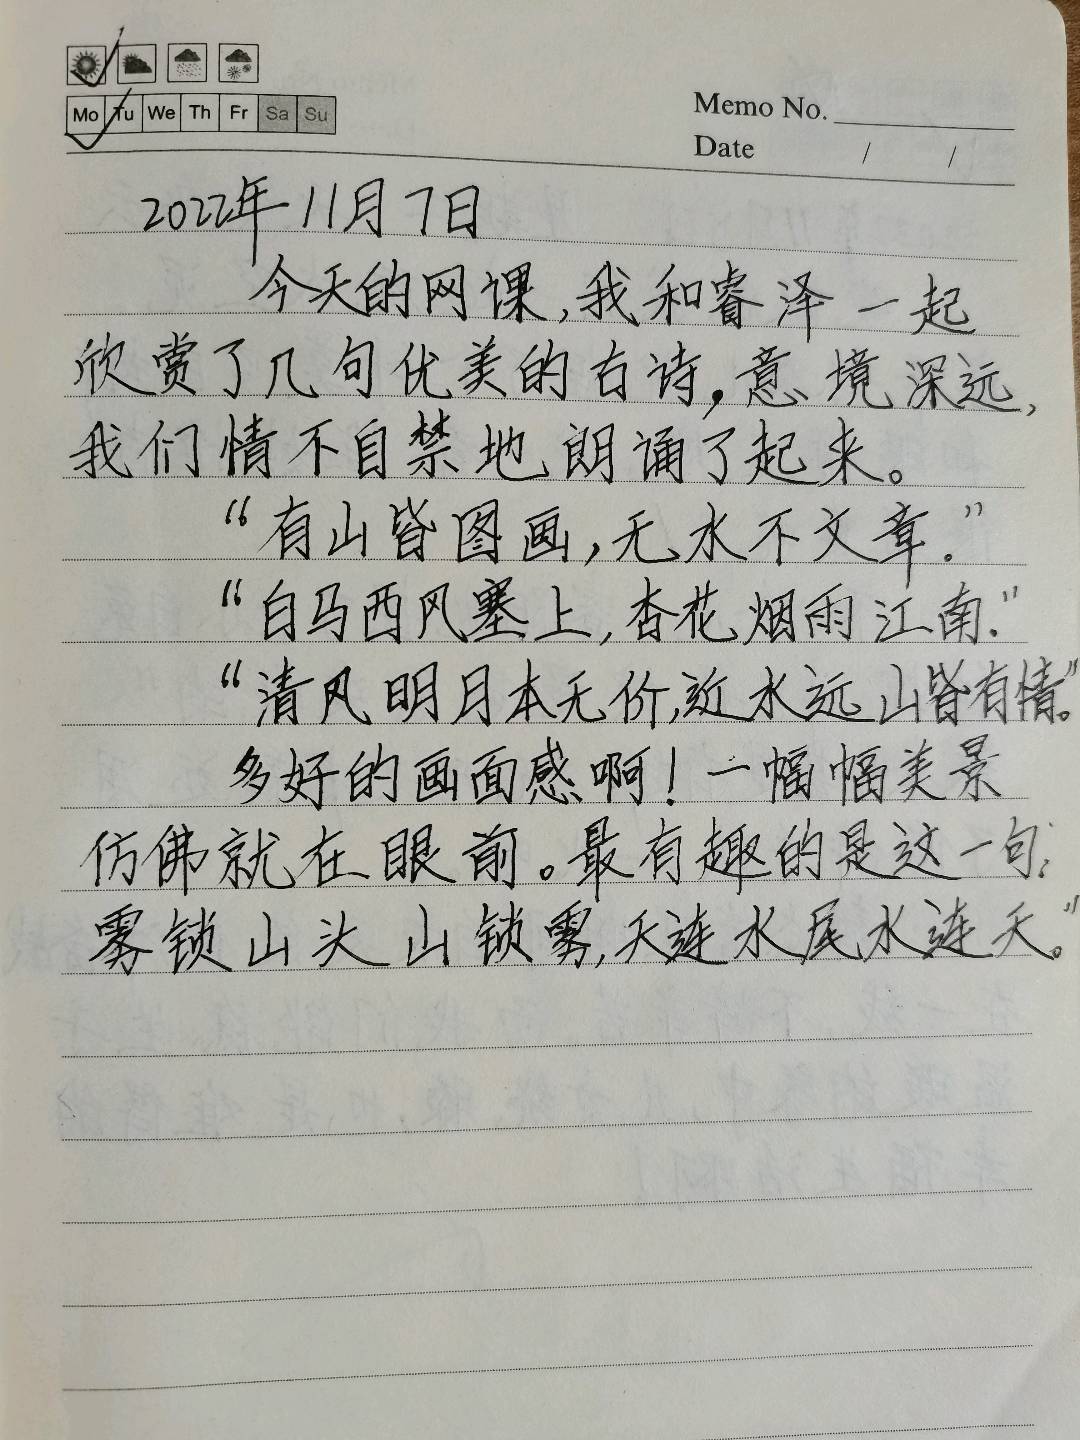 Mo Tu We Th Fr Sa Su
Memo No.
Date / /
2022年11月7日
今天的网课,我和睿泽一起
欣赏了几句优美的古诗,意境深远,
我们情不自禁地朗诵了起来。
“有山皆图画,无水不文章.”
“白马西风塞上,杏花烟雨江南.”
“清风明月本无价,近水远山皆有情。”
多好的画面感啊!一幅幅美景
仿佛就在眼前。最有趣的是这一句:
雾锁山头山锁雾,天连水尾水连天。”